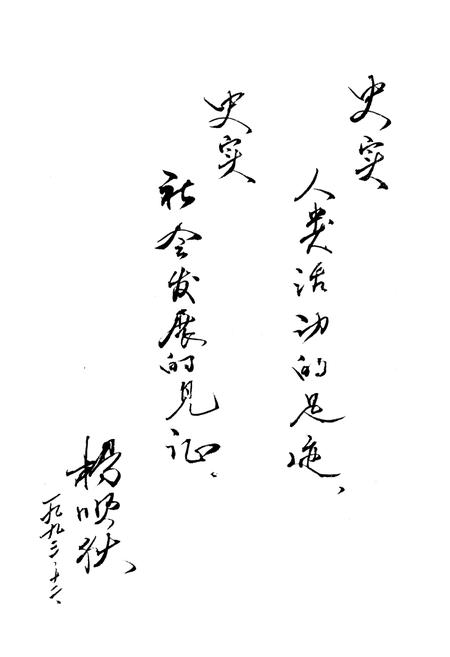 史实
人类活动的足迹、
史实
社会发展的见证、
杨顺
一九九三、十二、